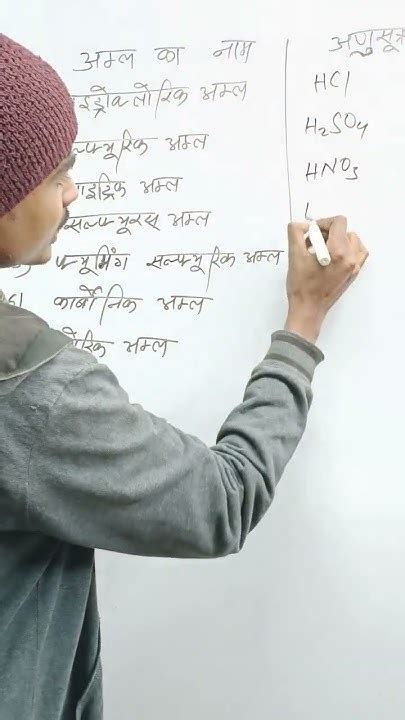 अम्ल का नाम अणुसूत्र
ाइड्रोक्लोरिक अम्ल HCl
ल्फ्यूरिक अम्ल H₂SO₄
ाइट्रिक अम्ल HNO₃
सल्फ्यूरस अम्ल
फ्यूमिंग सल्फ्यूरिक अम्ल
6) कार्बोनिक अम्ल
ोरिक अम्ल